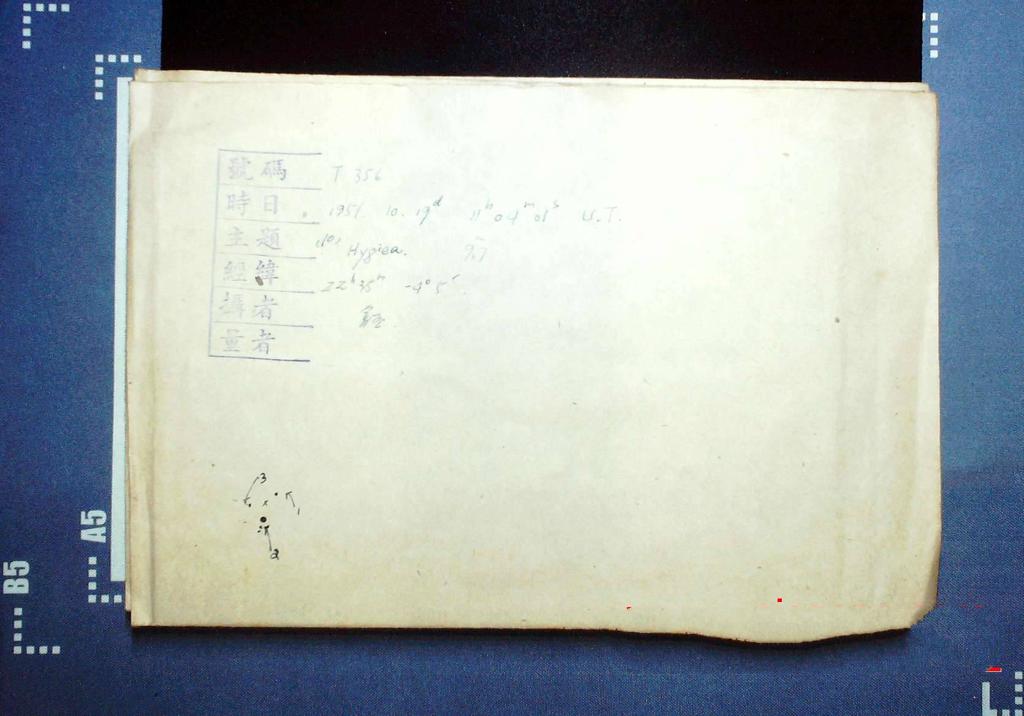 號碼 T 356
時日 1951. 10. 19ᵈ 11ʰ 04ᵐ 01ˢ U.T.
主題 Hygiea. 9.7
經緯 22ʰ35ᵐ -4° 5′
攝者
量者
3
1
2
A5
B5
L